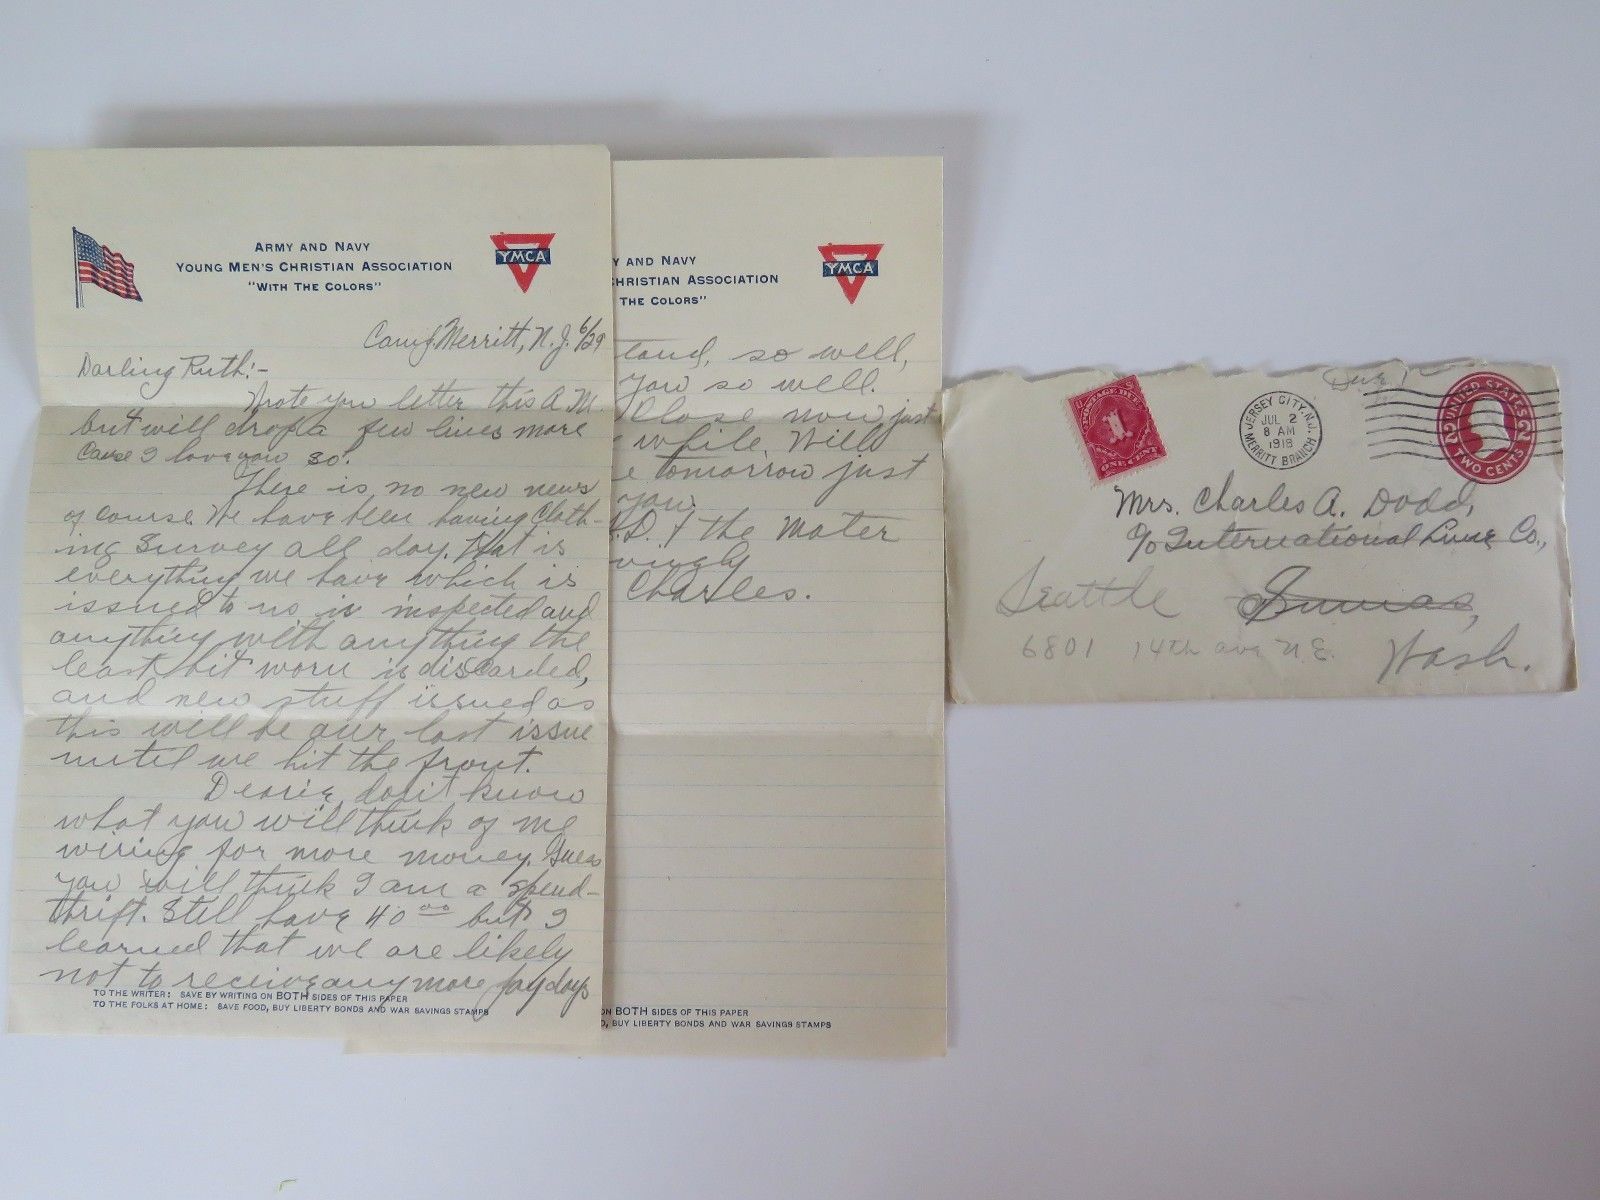 ARMY AND NAVY
YOUNG MEN'S CHRISTIAN ASSOCIATION
"WITH THE COLORS"
YMCA
Camp Merritt, N.J. 6/29
Darling Ruth:-
Wrote you letter this A.M.
but will drop a few lines more
Cause I love you so.
There is no new news
of course. We have been having Cloth-
ing Survey all day. That is
everything we have which is
issued to us is inspected and
anything with anything the
least bit worn is discarded,
and new stuff issued as
this will be our last issue
until we hit the front.
Dearie, don't know
what you will think of me
wiring for more money. Guess
you will think I am a spend-
thrift. Still have 40 00 but I
learned that we are likely
not to receive any more paydays
TO THE WRITER: SAVE BY WRITING ON BOTH SIDES OF THIS PAPER
TO THE FOLKS AT HOME: SAVE FOOD, BUY LIBERTY BONDS AND WAR SAVINGS STAMPS
Y AND NAVY
CHRISTIAN ASSOCIATION
THE COLORS"
YMCA
tand, so well,
you so well.
Close now just
while. Will
e tomorrow just
you.
.D. & the Mater
vingly
Charles.
ON BOTH SIDES OF THIS PAPER
D, BUY LIBERTY BONDS AND WAR SAVINGS STAMPS
POSTAGE DUE
1
ONE CENT
Due 1
JERSEY CITY, N.J.
JUL 2
8 AM
1918
MERRITT BRANCH
UNITED STATES
2 2
TWO CENTS
Mrs. Charles A. Dodd,
c/o International Lime Co.,
Seattle Sumas,
6801 14th ave N.E. Wash.